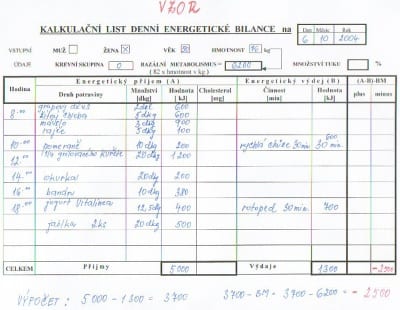 VZOR
KALKULAČNÍ LIST DENNÍ ENERGETICKÉ BILANCE na Den Měsíc Rok
6 10 2004
VSTUPNÍ MUŽ ŽENA X VĚK HMOTNOST kg
ÚDAJE KREVNÍ SKUPINA 0 BAZÁLNÍ METABOLISMUS = 6200 MNOŽSTVÍ TUKU %
( 82 x hmotnost v kg )
Energetický příjem (A) Energetický výdej (B) (A-B)-BM
Hodina Druh potraviny Množství [dkg] Hodnota [kJ] Cholesterol [mg] Činnost [min] Hodnota [kJ] plus minus
8.00 600
bílý 5 dkg 600
máslo 3 dkg 900
rajče 5 dkg 100
10.00 pomeranč 10 dkg 200 rychlá chůze 30 min 600 30 min
12.00 1/4 grilovaného kuřete 20 dkg 1200
14.00 okurka 20 dkg 200
16.00 10 dkg 380
18.00 jogurt Vitalinea 12,5 dkg 400 rotoped 30 min. 700
jablka 2ks 20 dkg 500
CELKEM Příjmy 5000 Výdaje 1300 -2500
VÝPOČET : 5000 - 1300 = 3700 3700 - BM = 3700 - 6200 = - 2500